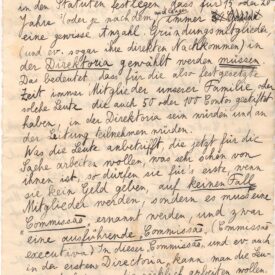 in den Statuten festlegen, dass für 15 oder 20
Jahre (oder je nachdem) immer
eine gewisse Anzahl Gründungsmitglieder
(und ev. sogar ihre direkten Nachkommen) in
der Direktoria gewählt werden müssen.
Das bedeutet dass für die also festgesetzte
Zeit immer Mitglieder unserer Familie oder
solche Leute die auch 50 oder 100 Contos gestiftet
haben, in der Direktoria sein würden und an
der Leitung teilnehmen würden.
Was die Leute anbetrifft die jetzt für die
Sache arbeiten wollen, was sehr schön von
ihnen ist, so dürfen sie für's erste wenn
sie kein Geld geben, auf keinen Fall
Mitglieder werden, sondern es muss eine
Commissão ernannt werden, und zwar
eine ausführende Commissão, (Commissão
executiva) In dieser Commissão, und ev auch
in der ersten Directoria, kann man die Leute
wirklich arbeiten wollen